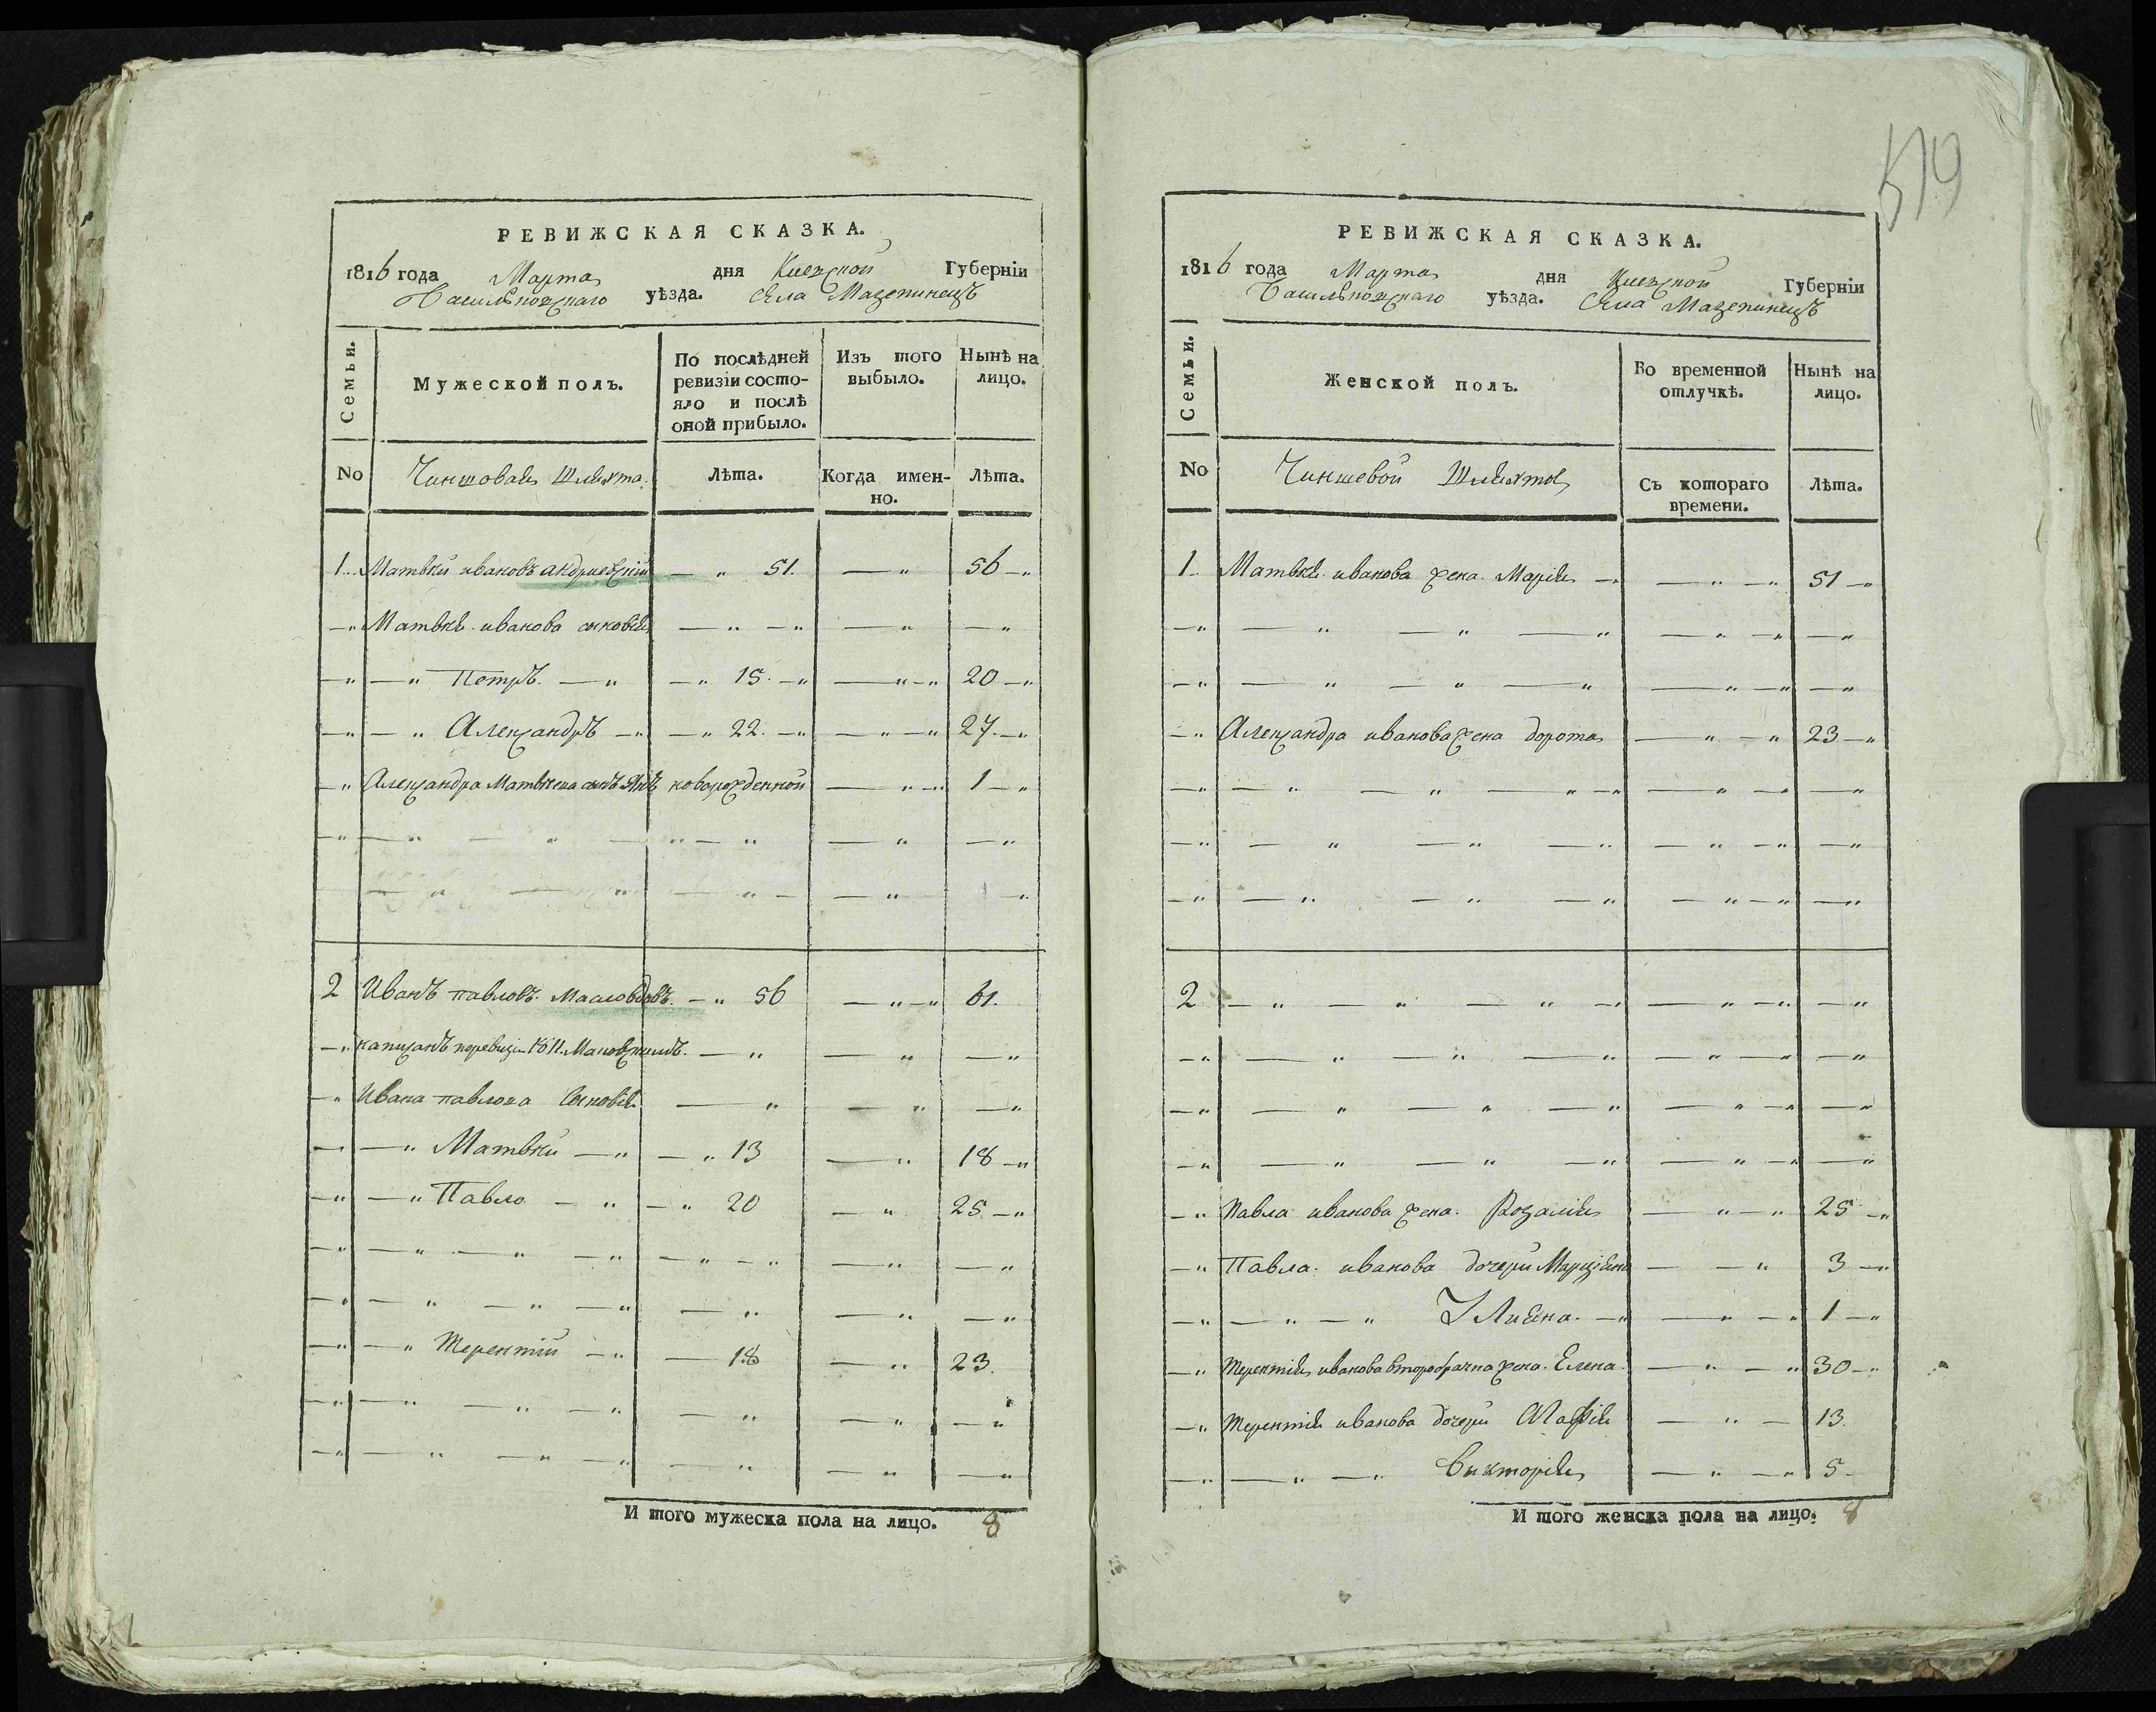 519
РЕВИЖСКАЯ СКАЗКА.
1816 года Марта дня Киевской Губерніи
Васильковскаго уѣзда. Села Мазепинецъ
Семьи.
Мужеской полъ.
По послѣдней ревизіи состояло и послѣ оной прибыло.
Изъ того выбыло.
Нынѣ на лицо.
No Чиншовая Шляхта Лѣта. Когда именно. Лѣта.
1 Матвей иванов андриевский — " 51. — " 56 — "
— " Матвея иванова сыновья — " — " — " — "
— " — " Петръ — " — " 15. — " — " — " 20 — "
— " — " Александръ — " — " 22. — " — " — " 27. — "
— " Александра Матвеева сынъ Янъ новорожденной — " — " 1 — "
2 Иванъ павловъ — " 56 — " — " 61.
— " 1811 — " — " — "
— " Ивана павлова Сыновья — " — " — "
— " — " Матвей — " — " 13 — " 18 — "
— " — " Павло — " — " 20 — " 25 — "
— " — " Терентий — " — 18 — " 23.
И того мужеска пола на лицо. 8
РЕВИЖСКАЯ СКАЗКА.
1816 года Марта дня Киевской Губерніи
Васильковскаго уѣзда. Села Мазепинецъ
Семьи.
Женской полъ.
Во временной отлучкѣ.
Нынѣ на лицо.
No Чиншевой Шляхты Съ котораго времени. Лѣта.
1. Матвея иванова жена Мария — — " — " 51 — "
— " Александра иванова жена дорота — " — " 23 — "
2 — " — " — " — " — " — " — "
— " Павла иванова жена Розалия — " — " 25 — "
— " Павла иванова дочери — — " 3 — "
— " — " — " Улияна — " — " — " 1 — "
— " Терентия иванова второбрачна жена Елена — " — " 30 — "
— " Терентия иванова дочери — " — 13.
— " — " — " Виктория — " — " 5
И того женска пола на лицо. 8